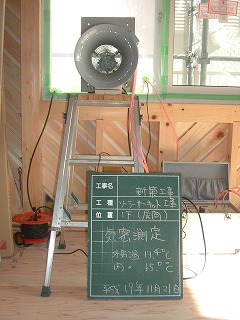 工事名 新築工事
工種 ソーラーサーキット工事
位置 1F(居間)
気密測定
外気温 11.4℃
内〃 15.0℃
平成19年11月21日